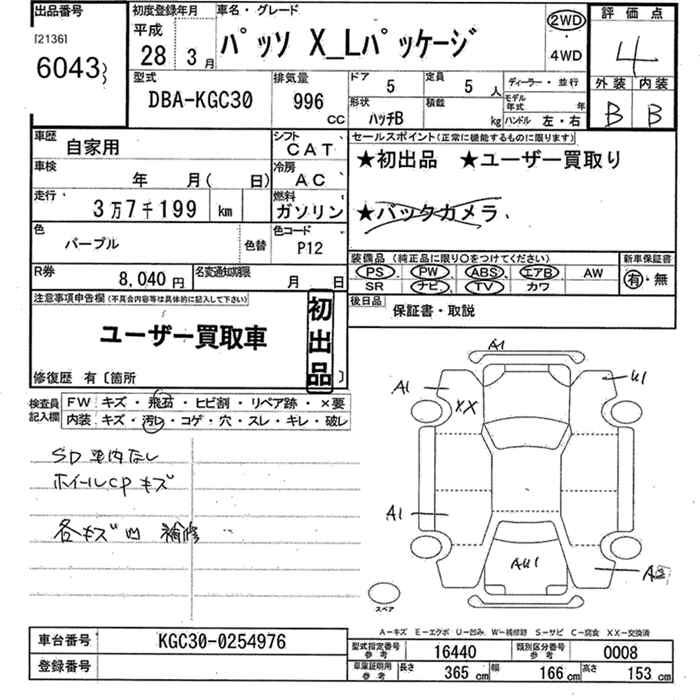 出品番号 初度登録年月 車名・グレード 評価点
[2136] 平成 パッソ X_Lパッケージ 2WD 4
6043 28年 3月 4WD 外装 内装
型式 排気量 ドア 定員 ディーラー・並行 B B
DBA-KGC30 996 cc 5 5人 モデル年式 年
形状 積載 ハンドル 左・右
ハッチB kg
車歴 自家用 シフト CAT セールスポイント(正常に機能するものに限ります)
車検 年 月( 日) 冷房 AC ★初出品 ★ユーザー買取り
走行 3万7千199 km 燃料 ガソリン ★バックカメラ
色 パープル 色替 色コード P12
装備品(純正品に限り○をつけてください) 新車保証書
R券 8,040円 名変通知期限 月 日 PS PW ABS エアB AW 有・無
SR ナビ TV カワ
注意事項申告欄(不具合内容等は具体的に記入して下さい) 初出品 後日品 保証書・取説
ユーザー買取車
修復歴 有〔箇所 〕
検査員記入欄 FW キズ・飛石・ヒビ割・リペア跡・×要
内装 キズ・汚れ・コゲ・穴・スレ・キレ・破レ
A1
A1 U1
XX
SD車内なし
ホイールCPキズ
A1
各キズ凹 補修
AU1
スペア
A―キズ E―エクボ U―凹み W―補修跡 S―サビ C―腐食 XX―交換済
車台番号 KGC30-0254976 型式指定番号 参考 16440 類別区分番号 参考 0008
登録番号 車庫証明用 参考 長さ 365cm 幅 166cm 高さ 153cm